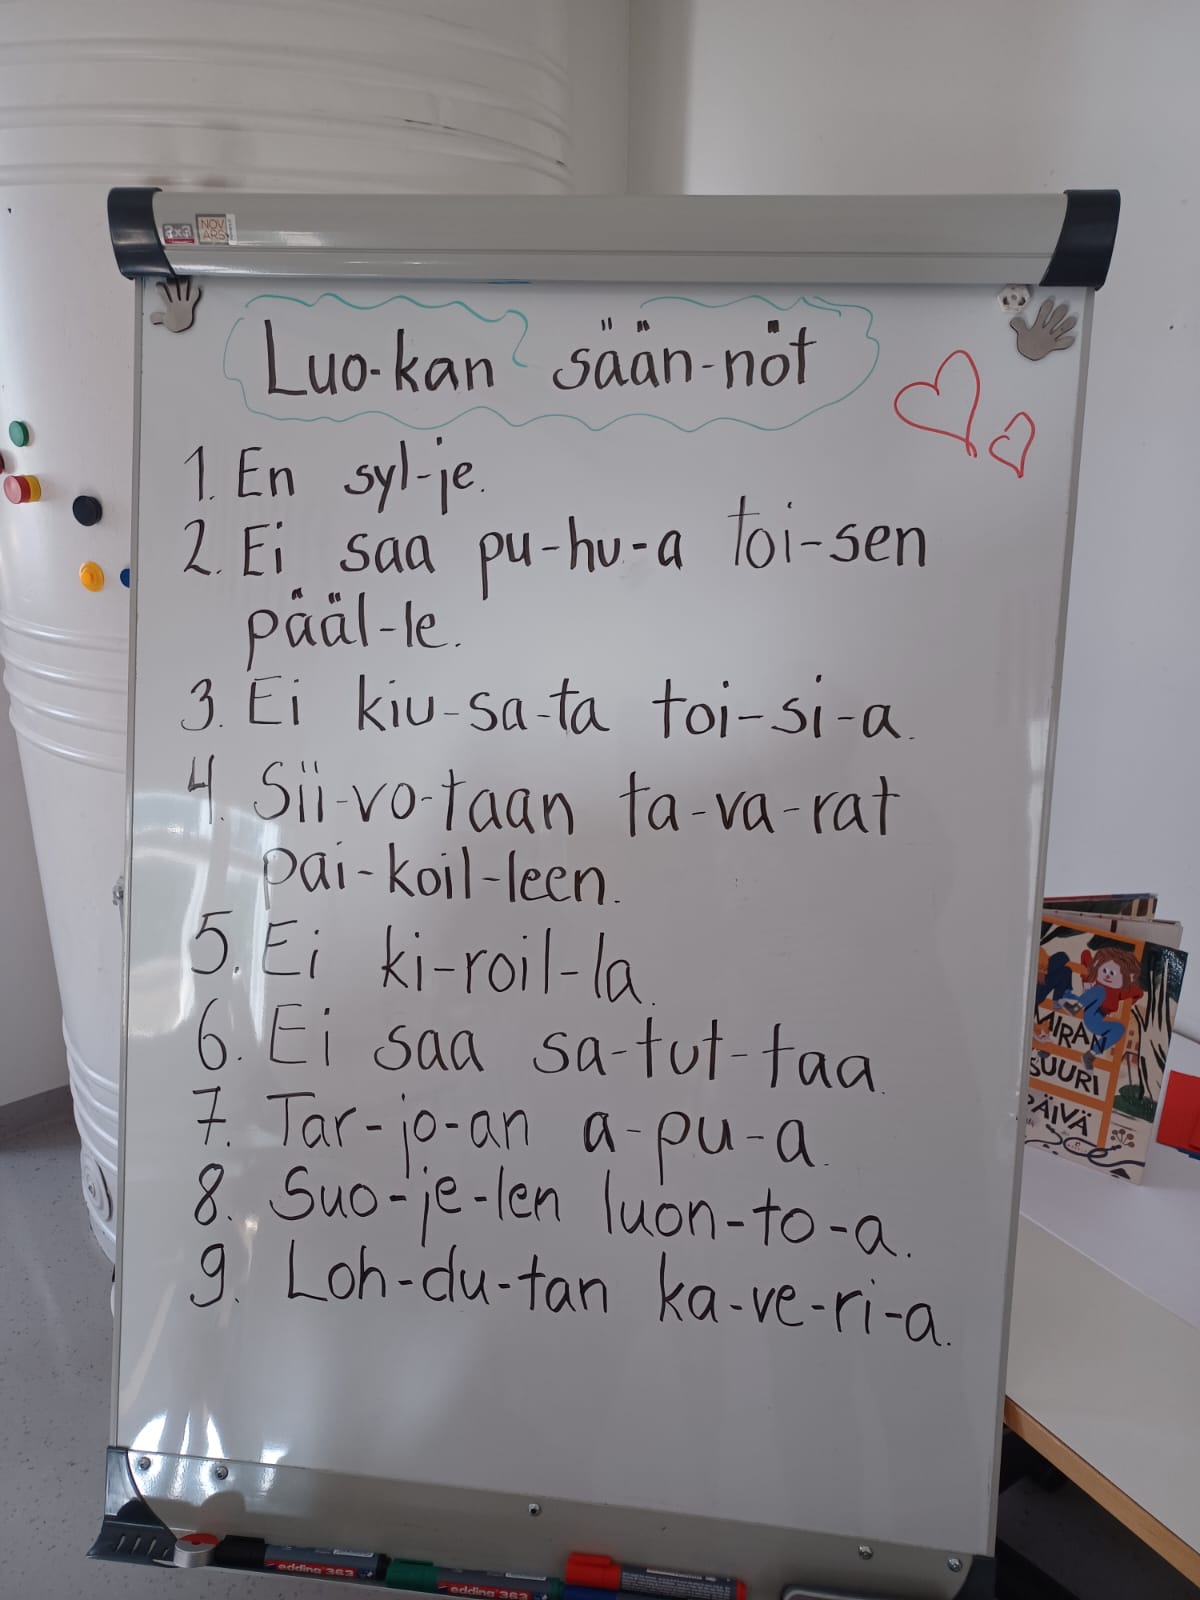 axa
NOV
ARS
Luo-kan sään-nöt
1. En syl-je.
2. Ei saa pu-hu-a toi-sen
pääl-le.
3. Ei kiu-sa-ta toi-si-a.
4. Sii-vo-taan ta-va-rat
pai-koil-leen.
5. Ei ki-roil-la.
6. Ei saa sa-tut-taa.
7. Tar-jo-an a-pu-a.
8. Suo-je-len luon-to-a.
9. Loh-du-tan ka-ve-ri-a.
MIRAN
SUURI
PÄIVÄ
edding 363
edding 363